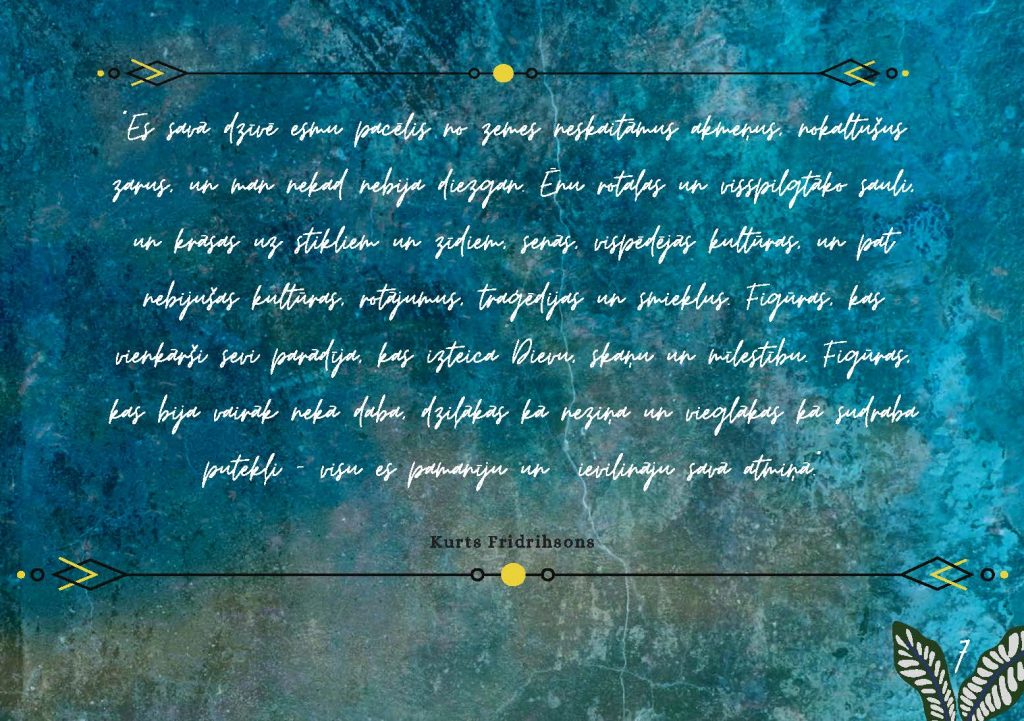 "Es savā dzīvē esmu pacēlis no zemes neskaitāmus akmeņus, nokaltušus
zarus, un man nekad nebija diezgan. Ēnu rotaļas un visspilgtāko sauli,
un krāsas uz stikliem un zīdiem, senās, vispēdējās kultūras, un pat
nebijušas kultūras, rotājumus, traģēdijas un smieklus. Figūras, kas
vienkārši sevi parādīja, kas izteica Dievu, skaņu un mīlestību. Figūras,
kas bija vairāk nekā daba, dziļākās kā neziņa un vieglākas kā sudraba
putekļi - visu es pamanīju un ievilināju savā atmiņā"
Kurts Fridrihsons
7